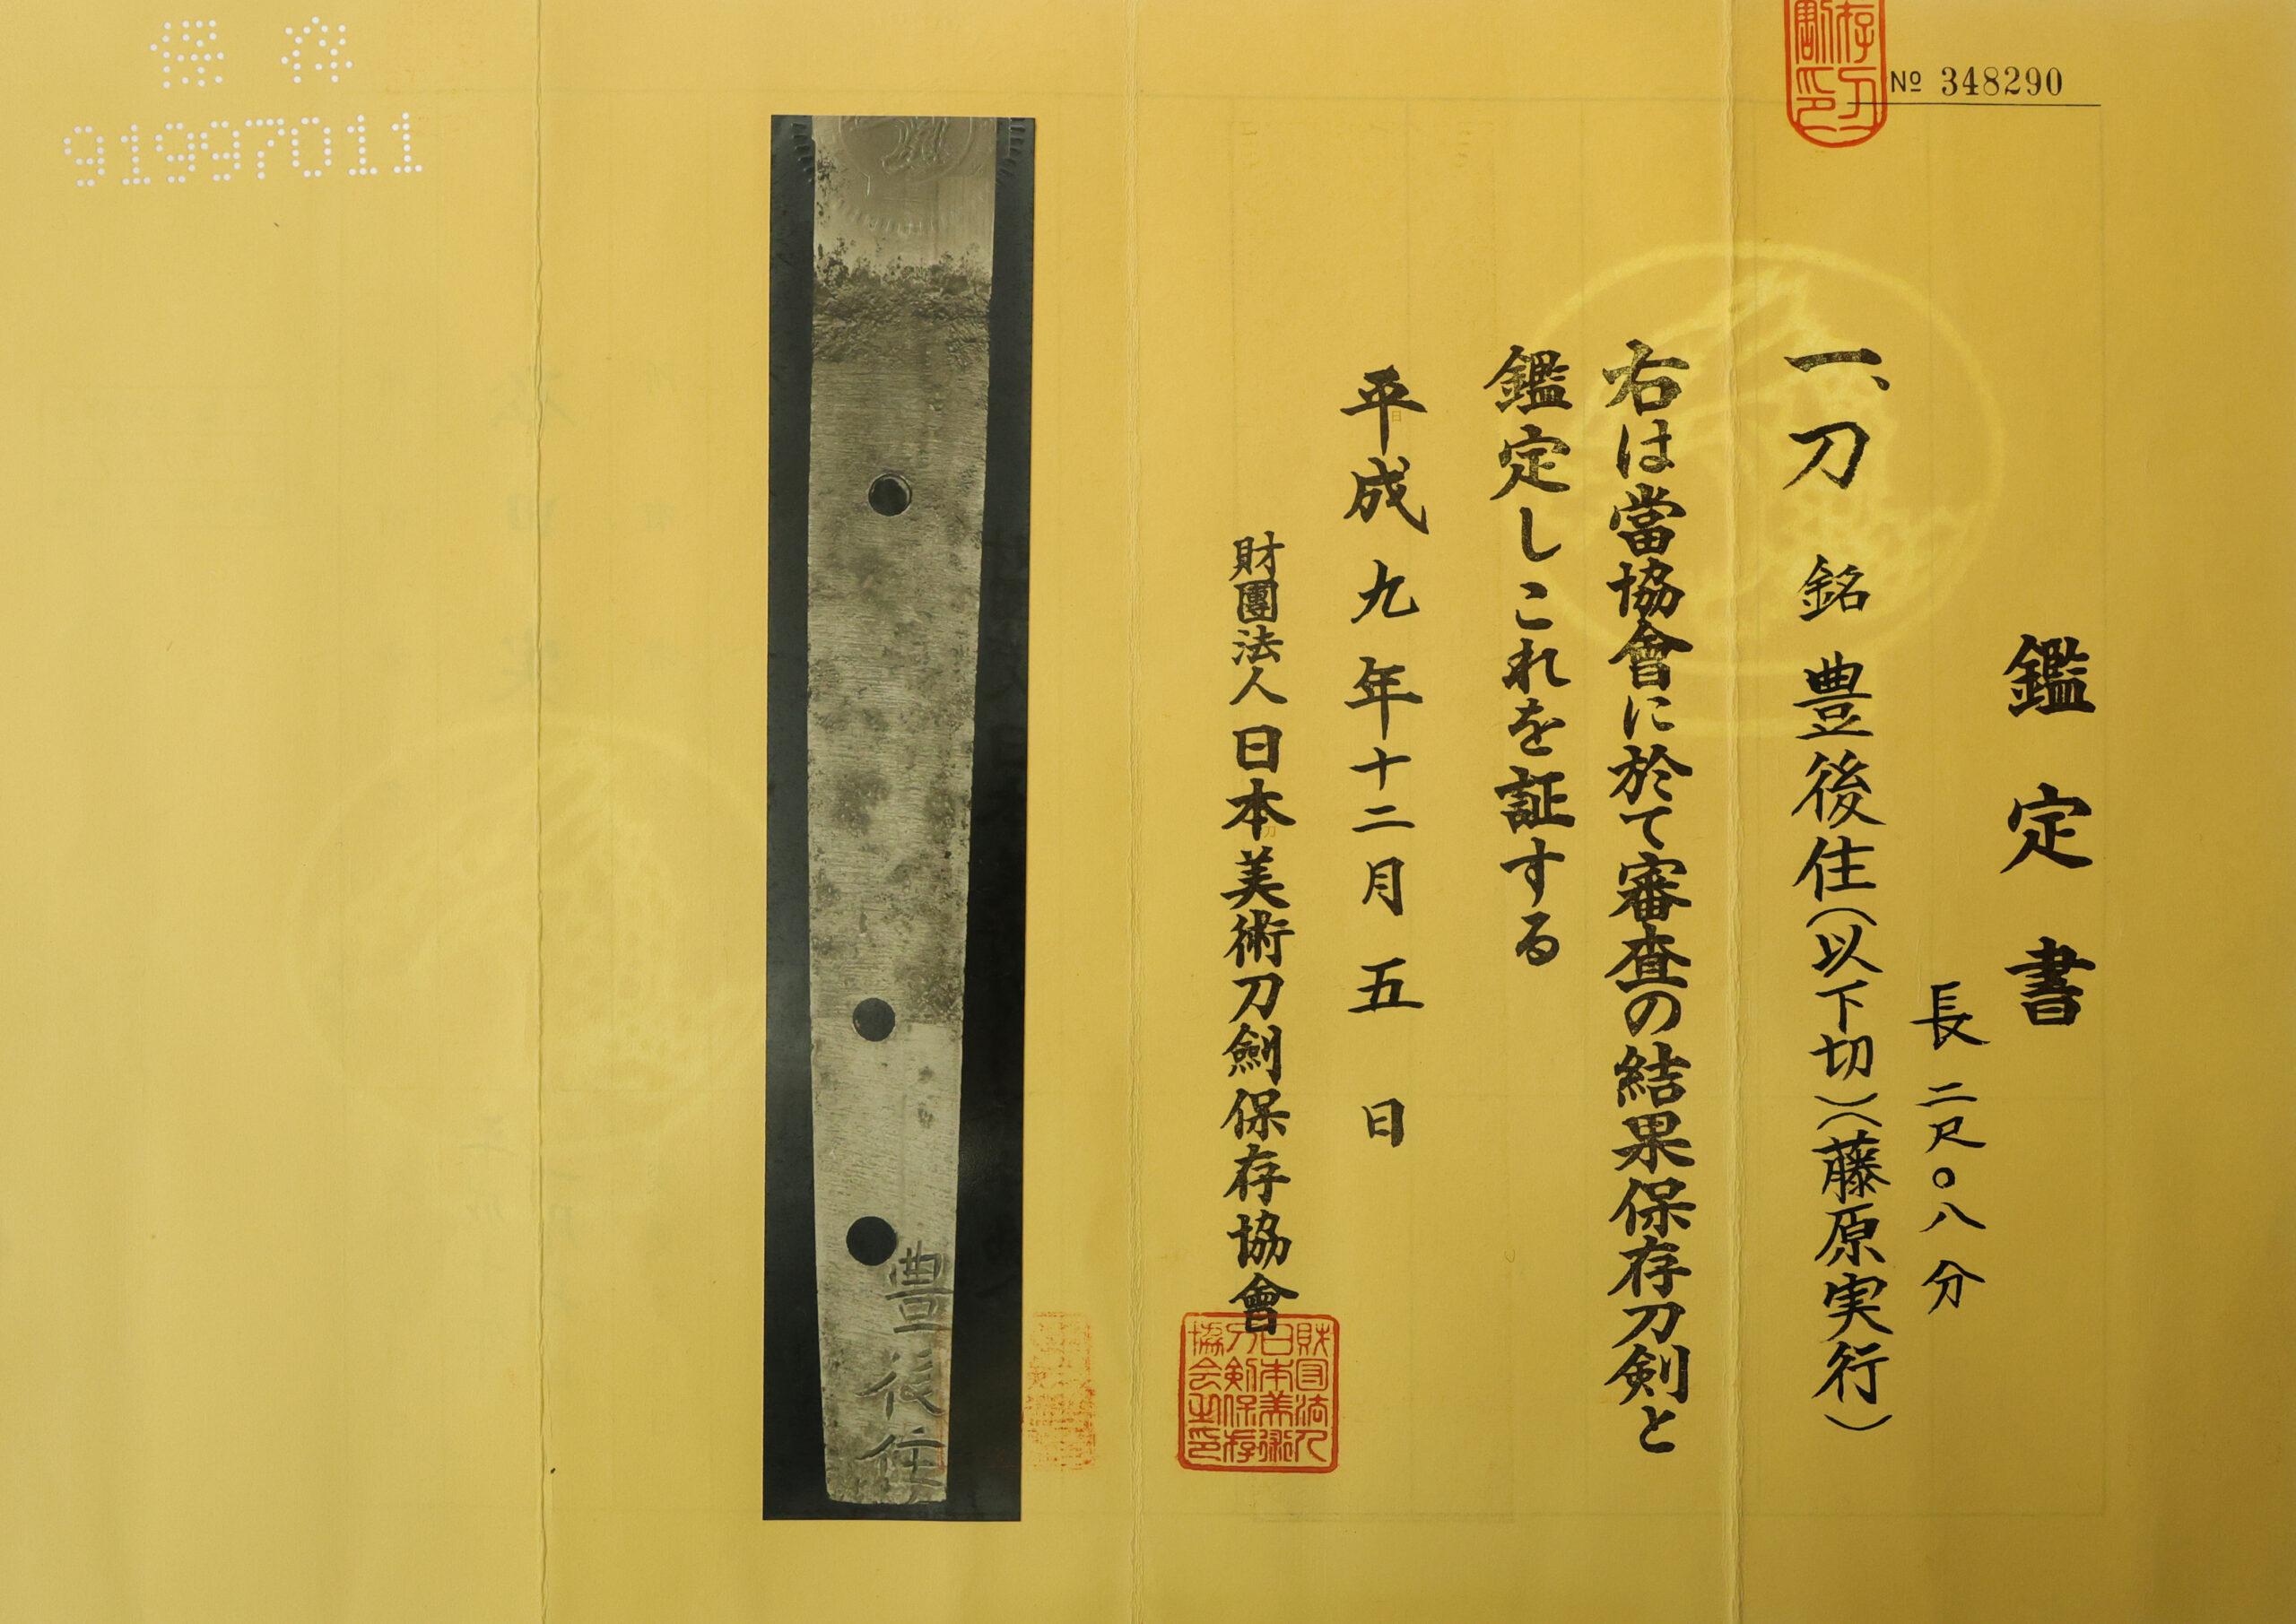 № 348290
鑑定書
長 二尺〇八分
一、刀 銘 豊後住(以下切)(藤原実行)
右は當協會に於て審査の結果保存刀剣と
鑑定しこれを証する
平成九年十二月五日
財團法人日本美術刀劍保存協會
財団法人
日本美術
刀剣保存
協会之印
豊後住
保存
91997011